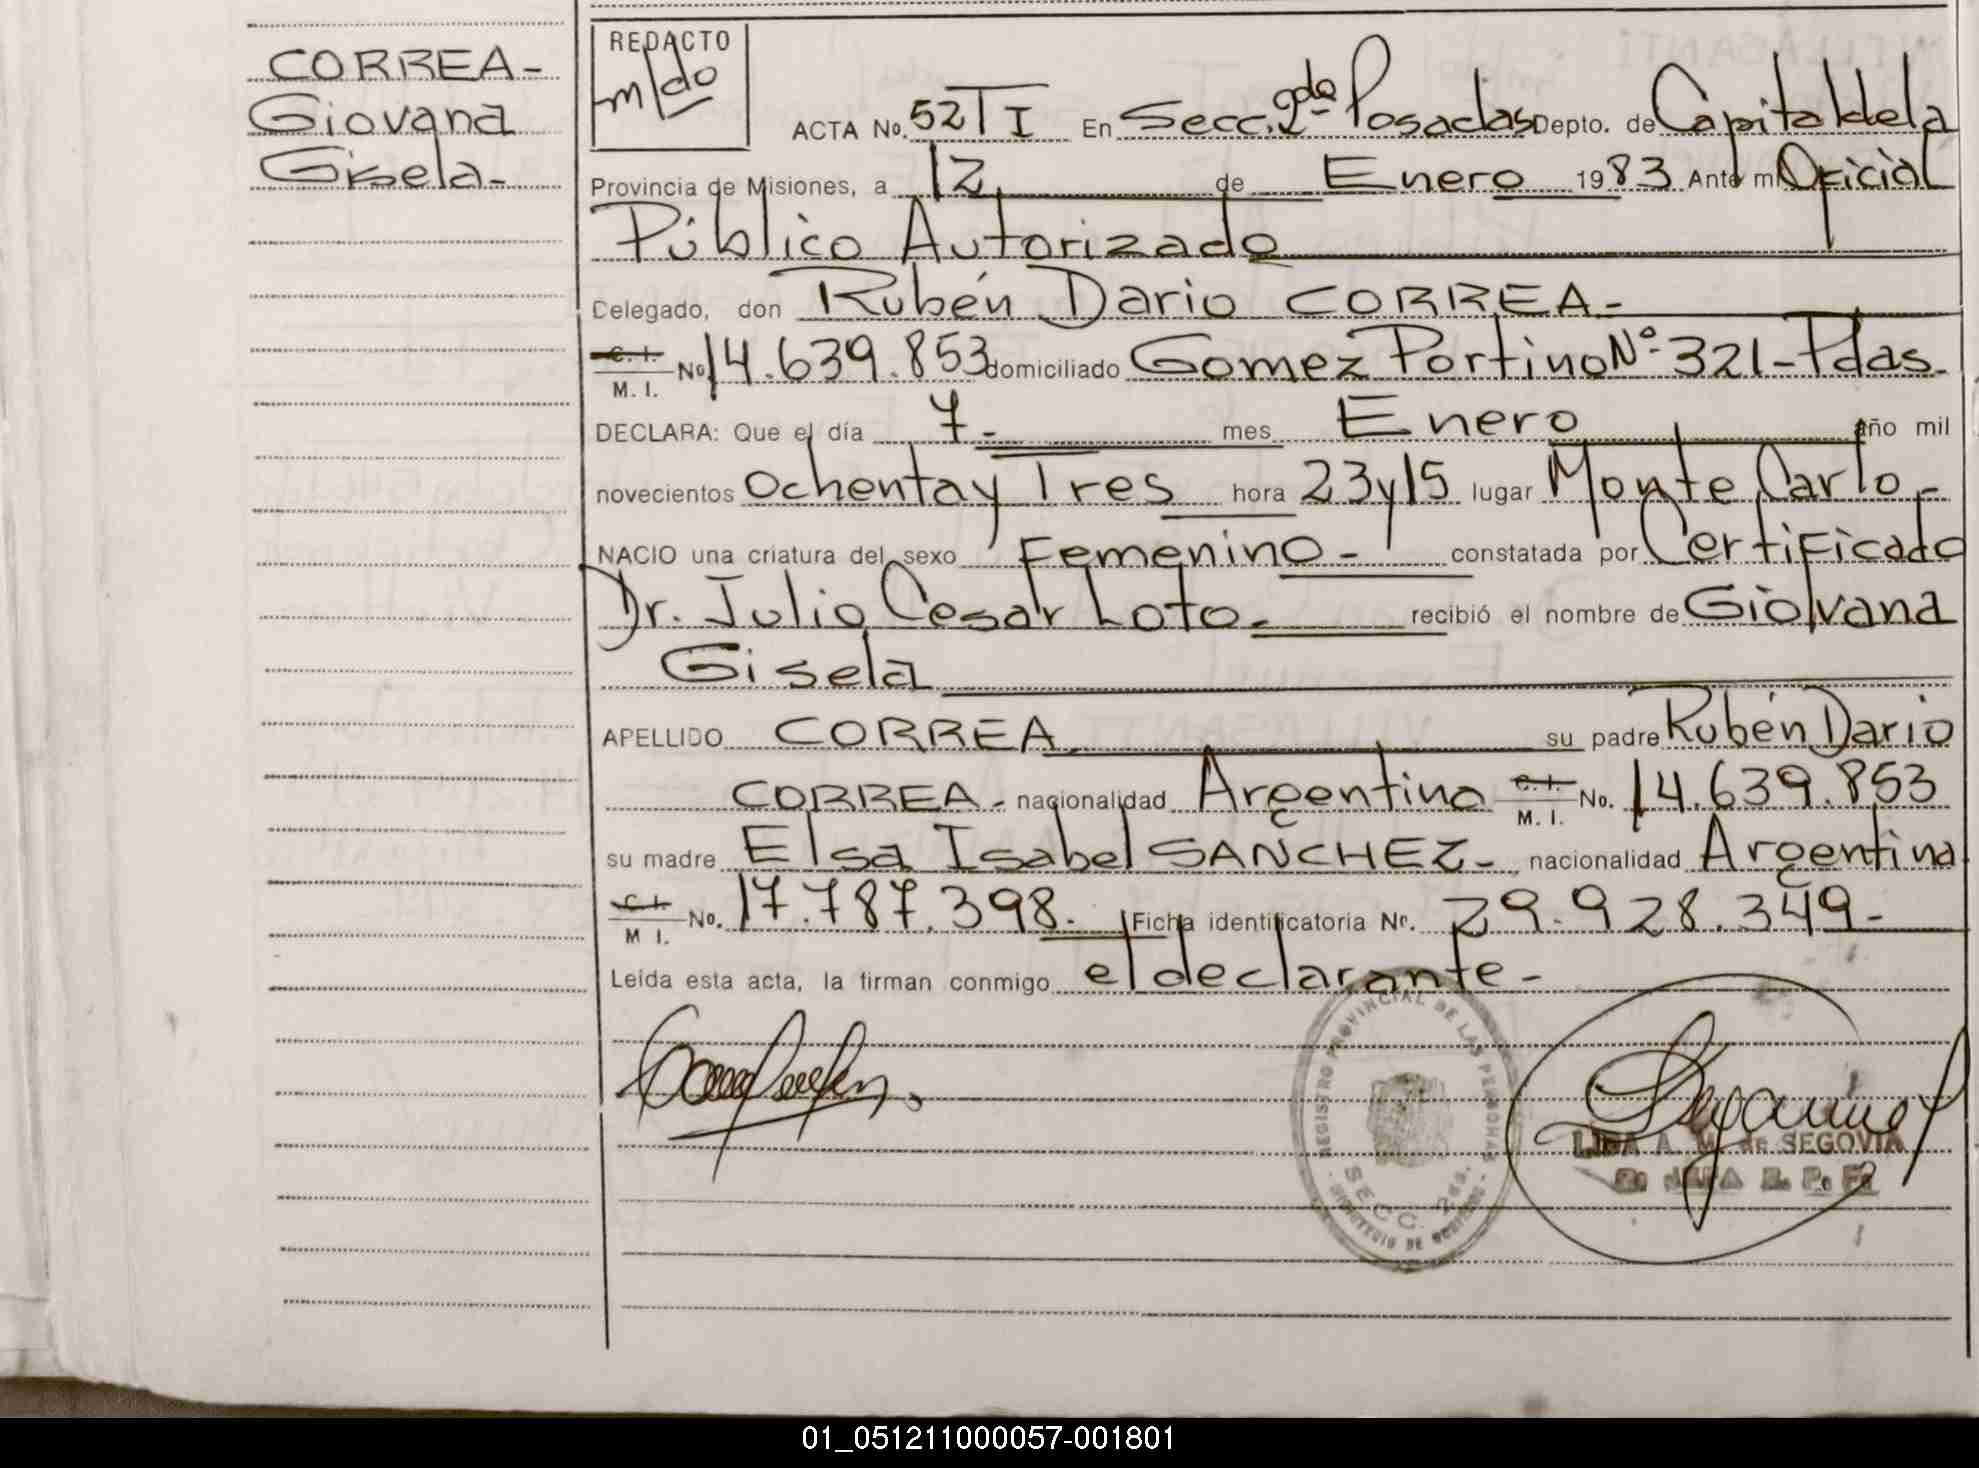 CORREA-
Giovana
Gisela-
REDACTO
mldo
ACTA No. 52 T I En Secc. 2da Posadas Depto. de Capital de la
Provincia de Misiones, a 12 de Enero 1983 Ante mi Oficial
Público Autorizado
Delegado, don Rubén Dario CORREA-
C. I. M. I. No 14.639.853 domiciliado Gomez Portino Nº 321-Pdas.
DECLARA: Que el día 7- mes Enero año mil
novecientos Ochenta y Tres hora 23 y 15 lugar Monte Carlo-
NACIO una criatura del sexo Femenino- constatada por Certificado
Dr. Julio Cesar Loto- recibió el nombre de Giovana
Gisela
APELLIDO CORREA su padre Rubén Dario
CORREA- nacionalidad Argentino C. I. M. I. No. 14.639.853
su madre Elsa Isabel SANCHEZ- nacionalidad Argentina
C. I. M I. No. 17.787.398- Ficha identificatoria Nr. 29.928.349-
Leída esta acta, la firman conmigo el declarante-
REGISTRO PROVINCIAL DE LAS PERSONAS
SECC. 2da.
A. M. de SEGOVIA
01_051211000057-001801